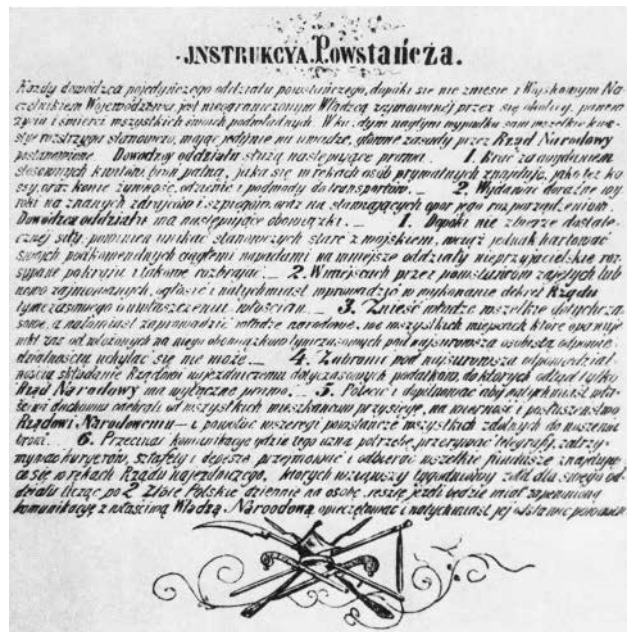 JNSTRUKCYA Powstańcza.
Każdy dowódzca pojedyńczego oddziału powstańczego, dopóki się nie zniesie z Wojskowym Na
czelnikiem Województwa jest nieograniczonym Władzcą zajmowanej przez się okolicy, panem
życia i śmierci wszystkich swoich podwładnych. W każdym nagłym wypadku sam wszelkie kwe
stye rozstrzyga stanowczo, mając jedynie na uwadze, główne zasady przez Rząd Narodowy
postanowione. Dowódzcy oddziału służą następujące prawa. 1. Brać za wydaniem
stosownych kwitów, broń palną, jaka się w rękach osób prywatnych znajduje, jako też ko
sy, oraz konie żywność, odzienie i podwody do transportów. _ 2. Wydawać doraźne wy
roki na znanych zdrajców i szpiegów, oraz na stawiających opór jego rozporządzeniom.
Dowódzca oddziału ma następujące obowiązki. _ 1. Dopóki nie zbierze dostate
cznej siły, powinien unikać stanowczych starć z wojskiem, wciąż jednak hartować
swoich podkomendnych ciągłemi napadami na mniejsze oddziały nieprzyjacielskie roz
sypane po kraju i takowe rozbrajać. _ 2. W miejscach przez powstańców zajętych lub
nowo zajmowanych, ogłosić i natychmiast wprowadzić w wykonanie dekret Rządu
tymczasowego o uwłaszczeniu włościan. _ 3. Znieść władze wszelkie dotychcza
sowe, a natomiast zaprowadzić władze narodowe, we wszystkich miejscach które opanuje
nikt zaś od włożonych na niego obowiązków tymczasowych pod najsurowszą osobistą odpowie
dzialnością uchylać się nie może. _ 4. Zabronić pod najsurowszą odpowiedzial
nością składanie Rządowi najezdniczemu dotychczasowych podatków, do których odtąd tylko
Rząd Narodowy ma wyłączne prawo. _ 5. Polecić i dopilnować aby natychmiast wła
ściwi duchowni odebrali od wszystkich mieszkańców przysięgę, na wierność i posłuszeństwo
Rządowi Narodowemu — i powołać w szeregi powstańcze wszystkich zdolnych do noszenia
broni. _ 6. Przecinać komunikacje gdzie tego uzna potrzebę, przerywać telegrafy, zatrzy
mywać kuryerów, sztafety i depesze przejmować i odbierać wszelkie fundusze znajdujące
się w rękach Rządu najezdniczego, których wziąwszy tygodniowy żołd dla swego od
działu licząc po 2 Złote Polskie dziennie na osobę, resztę jeżeli będzie miał zapewnioną
komunikację z właściwą Władzą Naroodową opieczętować i natychmiast jej odstawić powinien